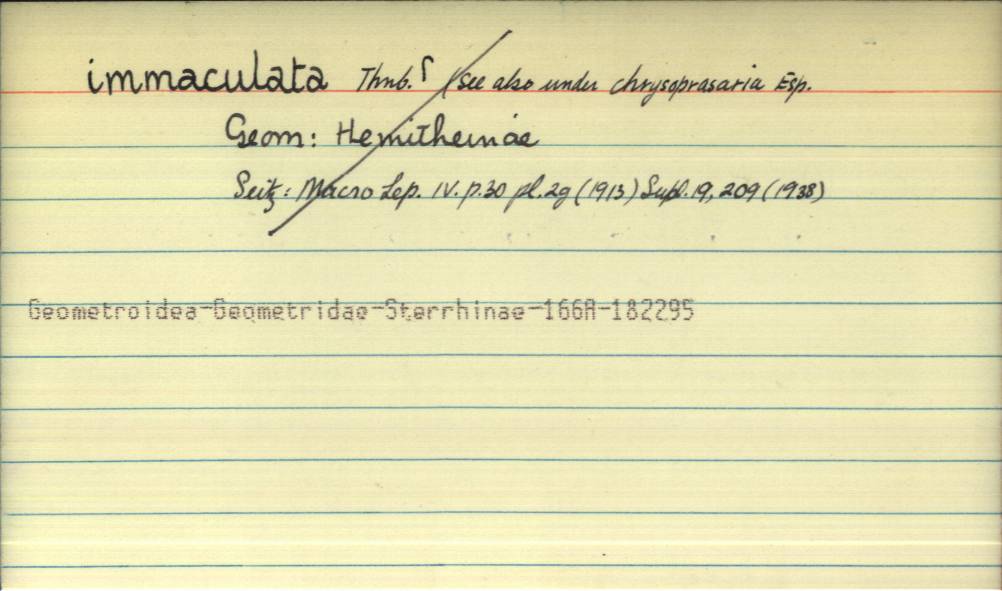 immaculata Thnb. (See also under chrysoprasaria Esp.
Geom: Hemitheinae
Seitz: Macro Lep. IV. p.30 pl.2g (1913) Supl. 19, 209 (1938)
Geometroidea-Geometridae-Sterrhinae-166A-182295